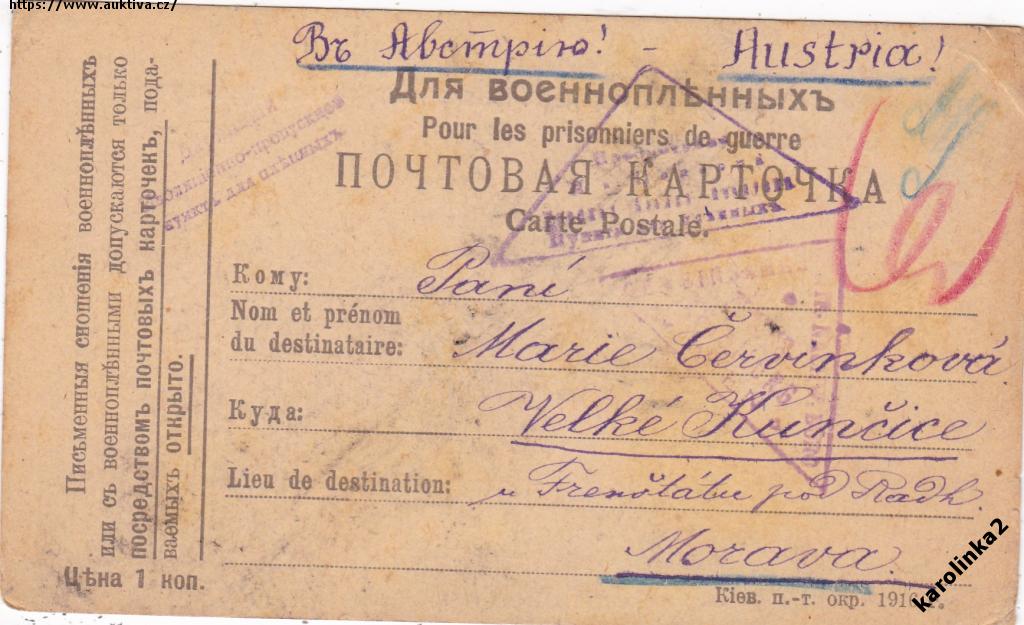 https://www.auktiva.cz/
Въ Австрію! - Austria!
Для военноплѣнныхъ
Pour les prisonniers de guerre
ПОЧТОВАЯ КАРТОЧКА
Carte Postale.
Кому: Paní
Nom et prénom
du destinataire: Marie Červinková
Куда: Velké Kunčice
Lieu de destination: u Frenštátu pod Radh.
Morava.
Кіев. п.-т. окр. 1916 г.
Письменныя сношенія военноплѣнныхъ
или съ военноплѣнными допускаются только
посредствомъ почтовыхъ карточекъ, пода-
ваемыхъ открыто.
Цѣна 1 коп.
пунктъ для плѣнныхъ
karolinka2